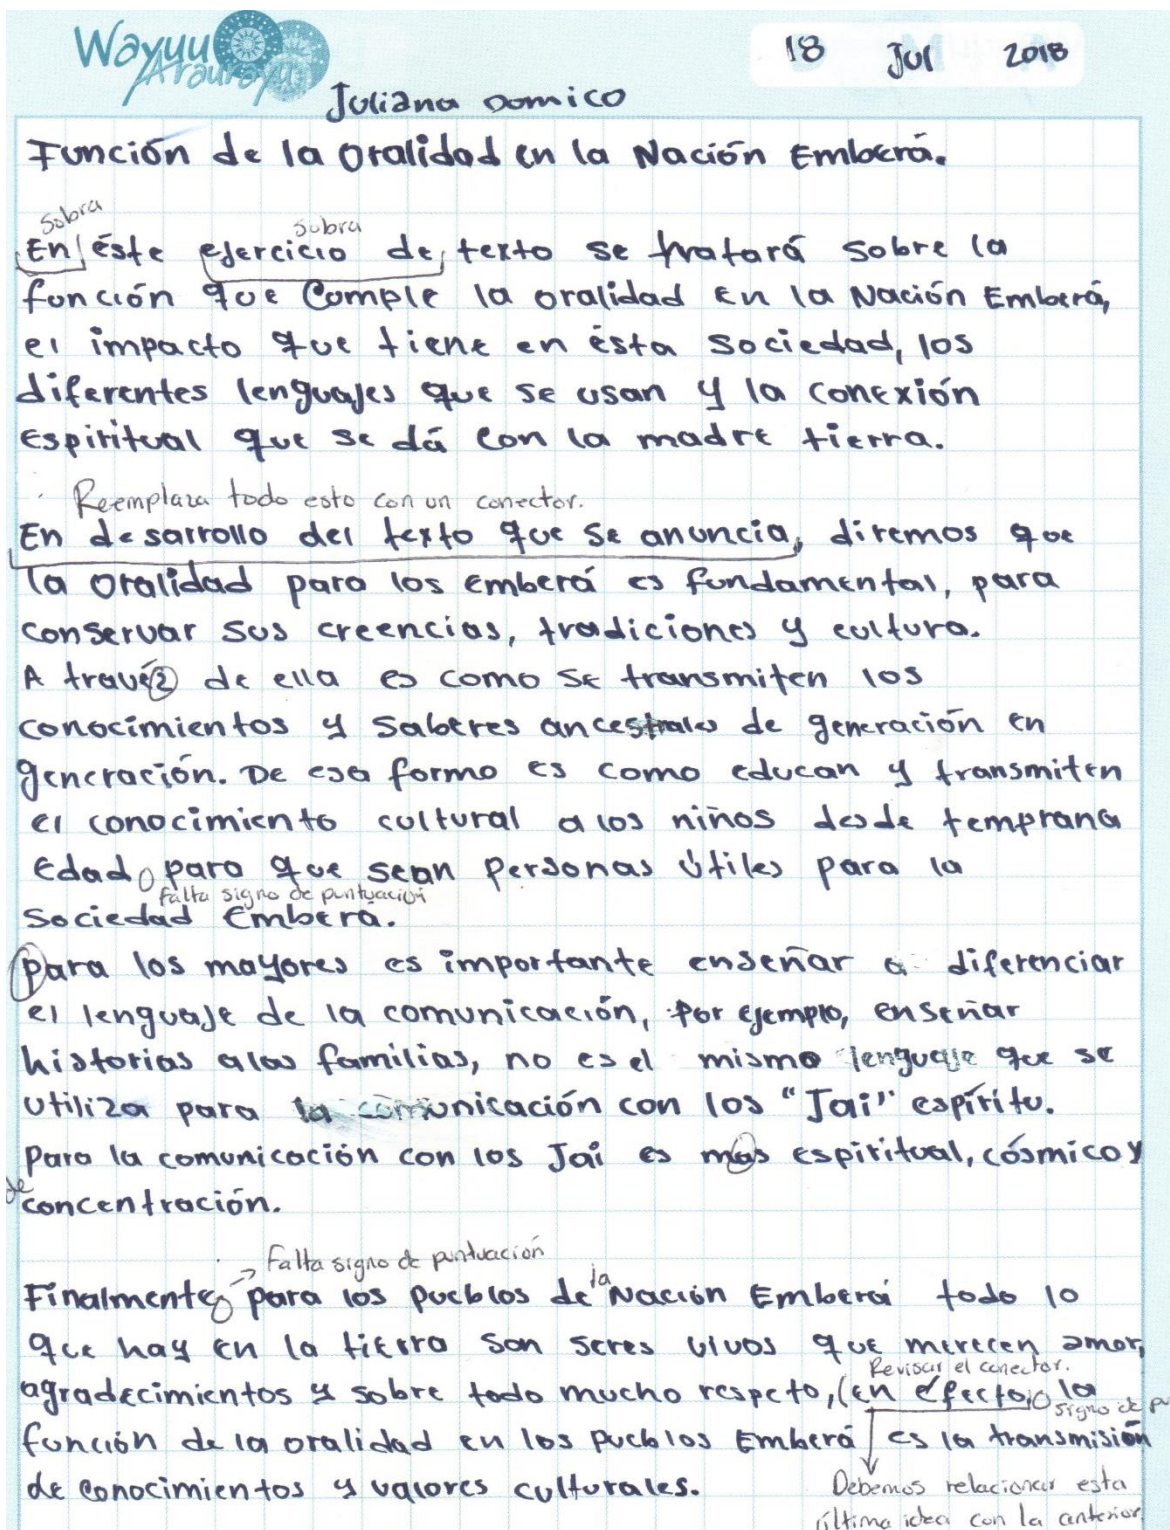 Wayuu
Araurayu
18 Jul 2018
Juliana Domico
Función de la Oralidad en la Nación Emberá.
Sobra
Sobra
En éste ejercicio de texto se tratará sobre la
función que Cumple la oralidad en la Nación Emberá,
el impacto que tiene en ésta sociedad, los
diferentes lenguajes que se usan y la conexión
Espiritual que se dá con la madre tierra.
Reemplaza todo esto con un conector.
En desarrollo del texto que se anuncia, diremos que
la Oralidad para los Emberá es fundamental, para
conservar sus creencias, tradiciones y cultura.
A travéz de ella es como se transmiten los
conocimientos y Saberes ancestrales de generación en
generación. De esa forma es como educan y transmiten
el conocimiento cultural a los niños desde temprana
Edad para que sean personas útiles para la
falta signo de puntuación
Sociedad Emberá.
para los mayores es importante enseñar a diferenciar
el lenguaje de la comunicación, Por ejemplo, enseñar
historias a las familias, no es el mismo lenguaje que se
utiliza para la comunicación con los "Jai" espíritu.
Para la comunicación con los Jai es mas espiritual, cósmico y
de concentración.
Falta signo de puntuación
Finalmente para los pueblos de la Nación Emberá todo lo
que hay en la tierra son seres vivos que merecen amor,
Revisar el conector.
agradecimientos y sobre todo mucho respeto, (en efecto la
signo de pu
función de la oralidad en los pueblos Emberá es la transmisión
de conocimientos y valores culturales.
Debemos relacionar esta
última idea con la anterior